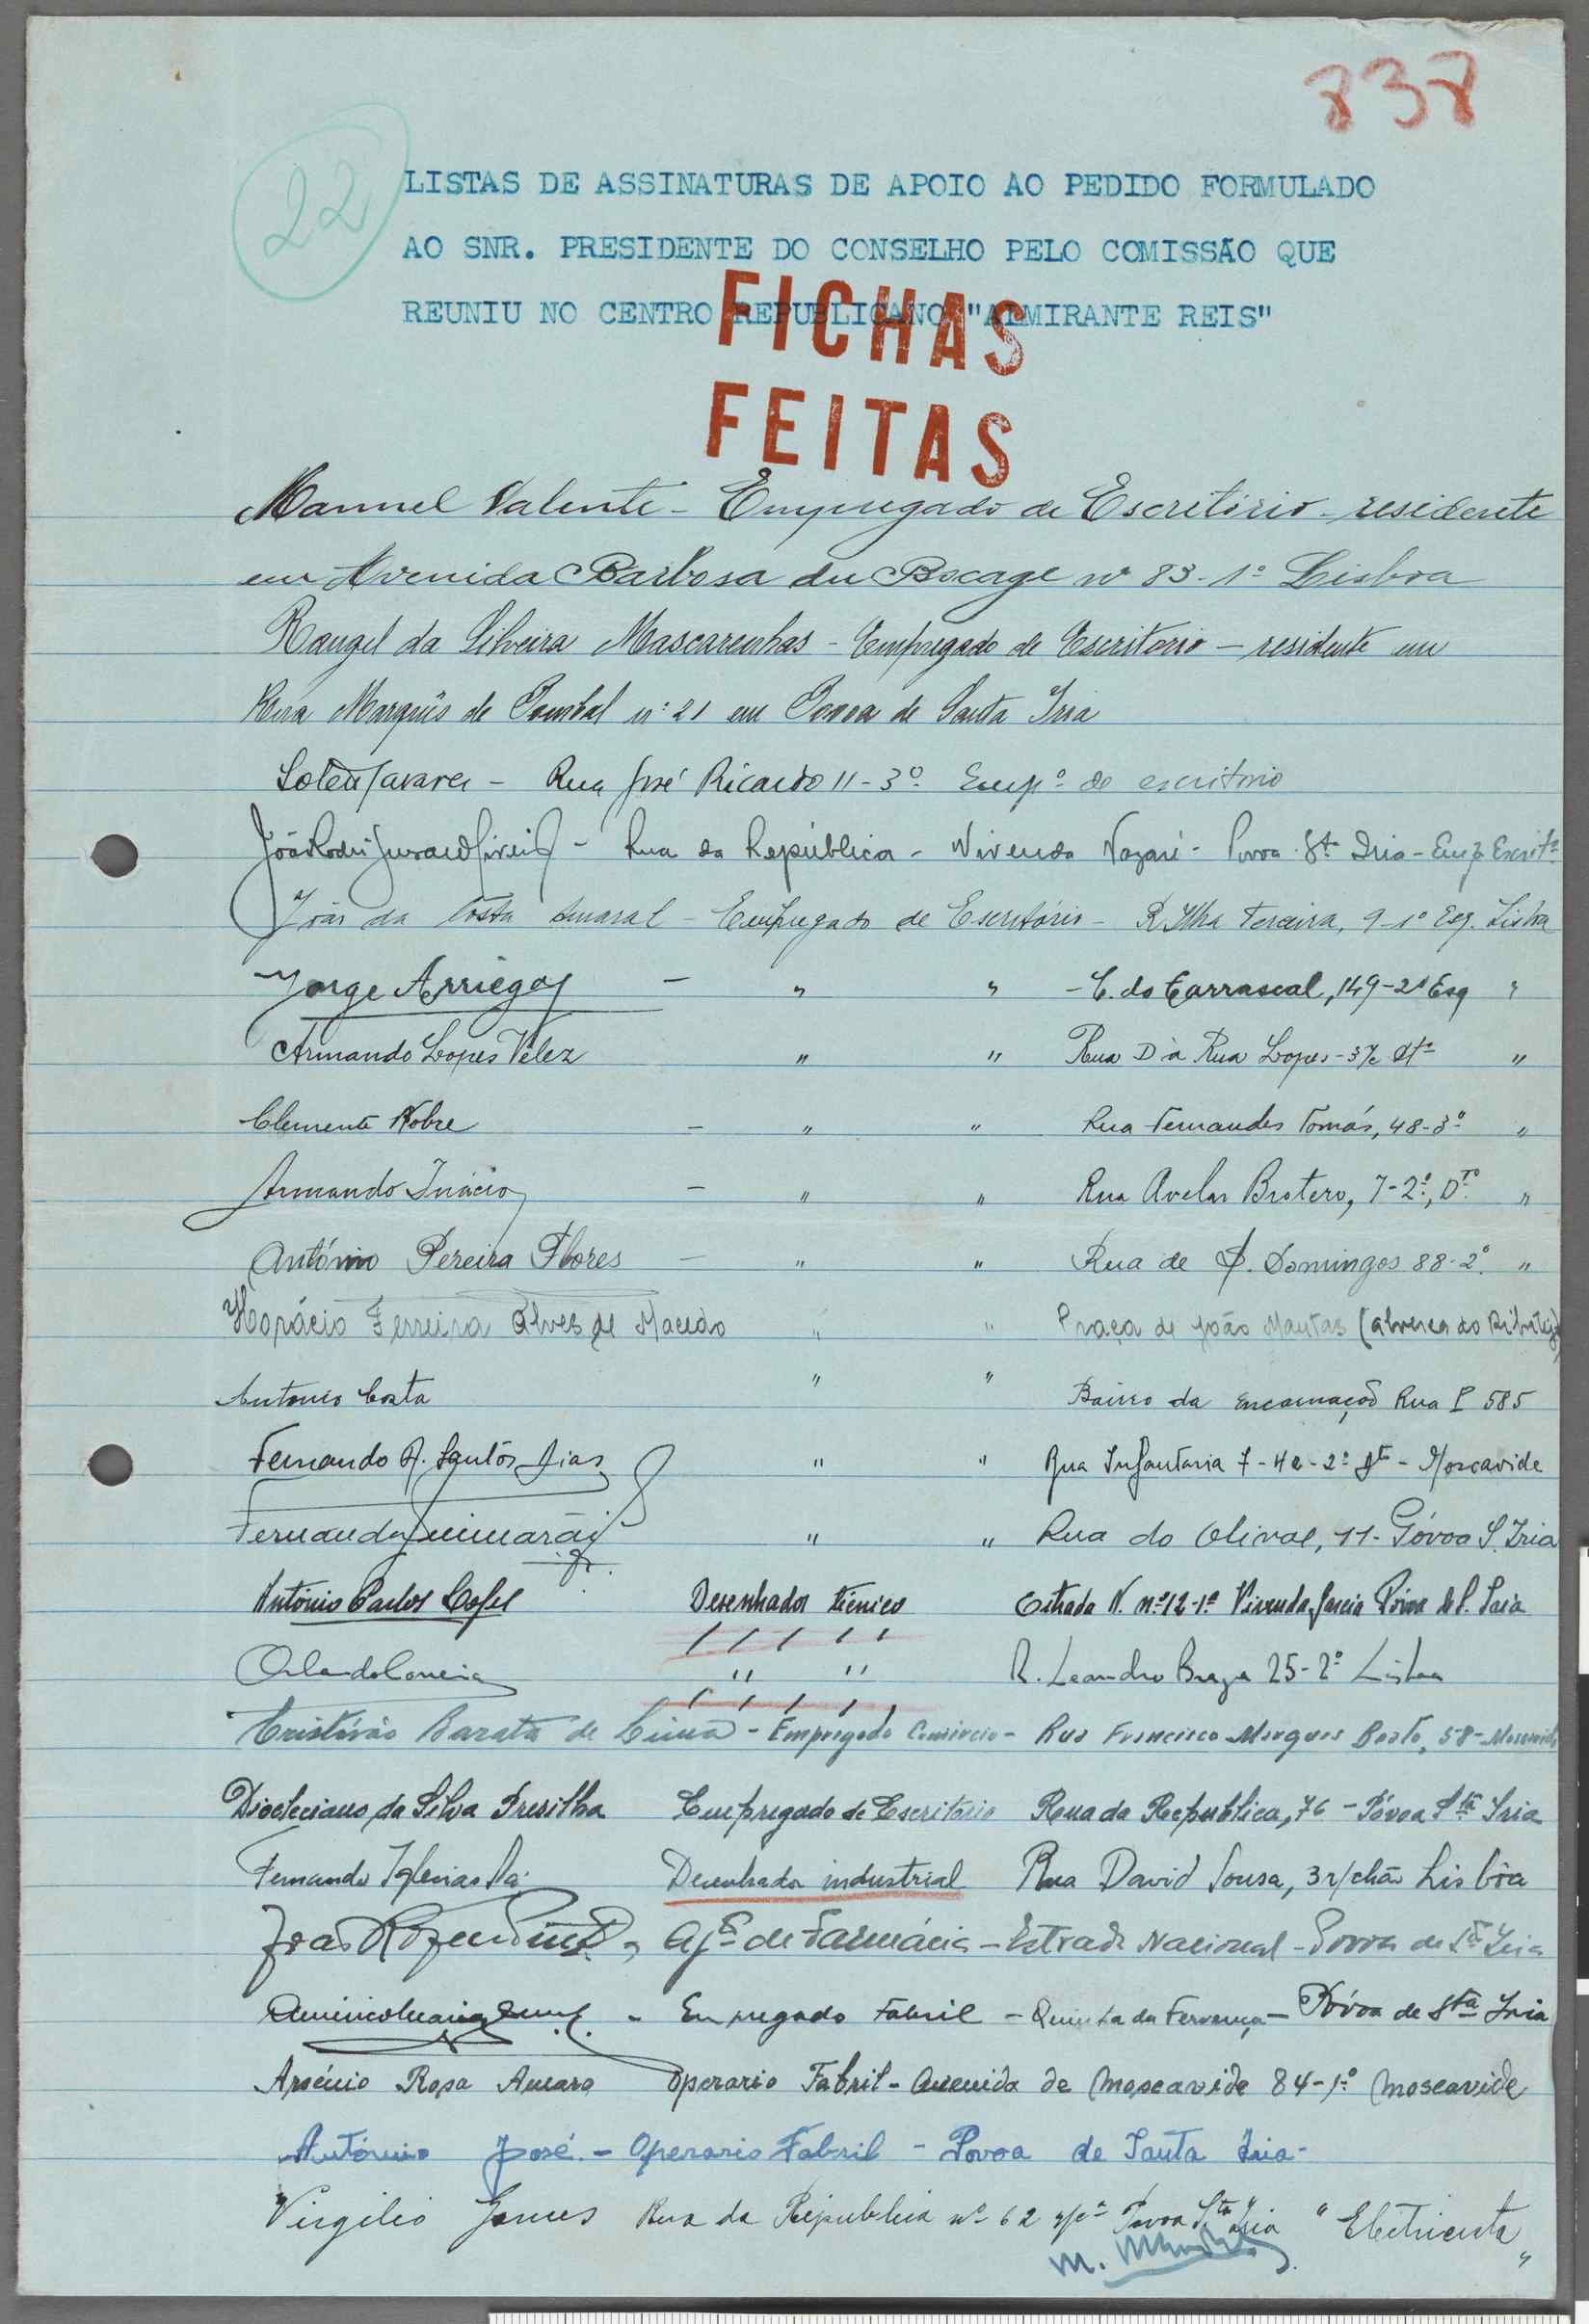 838
22
LISTAS DE ASSINATURAS DE APOIO AO PEDIDO FORMULADO
AO SNR. PRESIDENTE DO CONSELHO PELO COMISSÃO QUE
REUNIU NO CENTRO REPUBLICANO "ALMIRANTE REIS"
FICHAS
FEITAS
Manuel Valente - Empregado de Escritório - residente
em Avenida Barbosa du Bocage nº 83-1º Lisboa
Rangel da Silveira Mascarenhas - Empregado de Escritorio - residente em
Rua Marquês de Pombal nº 21 em Povoa de Santa Iria
Tavares - Rua José Ricardo 11-3º Empº de escritorio
João - Rua da República - Vivenda Nazaré - Povoa Stª Iria - Emp. Escritº
João da Costa Amaral - Empregado de Escritório - R. Ilha Terceira, 9-1º Esq. Lisboa
Jorge Arriegas - " " - C. do Carrascal, 149-2º Esq "
Armando Lopes Velez " " Rua D à Rua Lopes - r/c dtº "
Clemente Nobre - " " Rua Fernandes Tomás, 48-3º "
Armando Inácio - " " Rua Avelar Brotero, 7-2º, Dtº "
António Pereira Flores - " " Rua de S. Domingos 88-2º "
Horácio Ferreira Alves de Macedo " " Praça de João Mantas (Alverca do Ribatejo)
Antonio Costa " " Bairro da Encarnação Rua I 585
Fernando A. Santos Dias " " Rua Infantaria 7-4e-2º dtº - Moscavide
Fernando Guimarães Jr. " " Rua do Olival, 11 - Póvoa S. Iria
António Carlos Desenhador técnico Estrada N. nº 12-1º Vivenda Garcia Póvoa de S. Iria
Orlando Correia " " R. Leandro Braga 25-2º Lisboa
Cristóvão Barata de Lima - Empregado Comércio - Rua Francisco Marques Beato, 58 - Moscavide
Diocleciano da Silva Empregado de Escritório Rua da Republica, 76 - Póvoa Stª Iria
Fernando Iglesias Desenhador industrial Rua David Sousa, 3 r/chão Lisbôa
João Ajᵉ de Farmácia - Estrada Nacional - Povoa de Stª Iria
- Empregado Fabril - Quinta da - Póvoa de Stª Iria
Arsénio Rosa Amaro Operario Fabril - Avenida de Moscavide 84-1º Moscavide
António José - Operario Fabril - Povoa de Santa Iria -
Virgilio Gomes Rua da Républica nº 62 Povoa Stª Iria " Eletricista "
M.